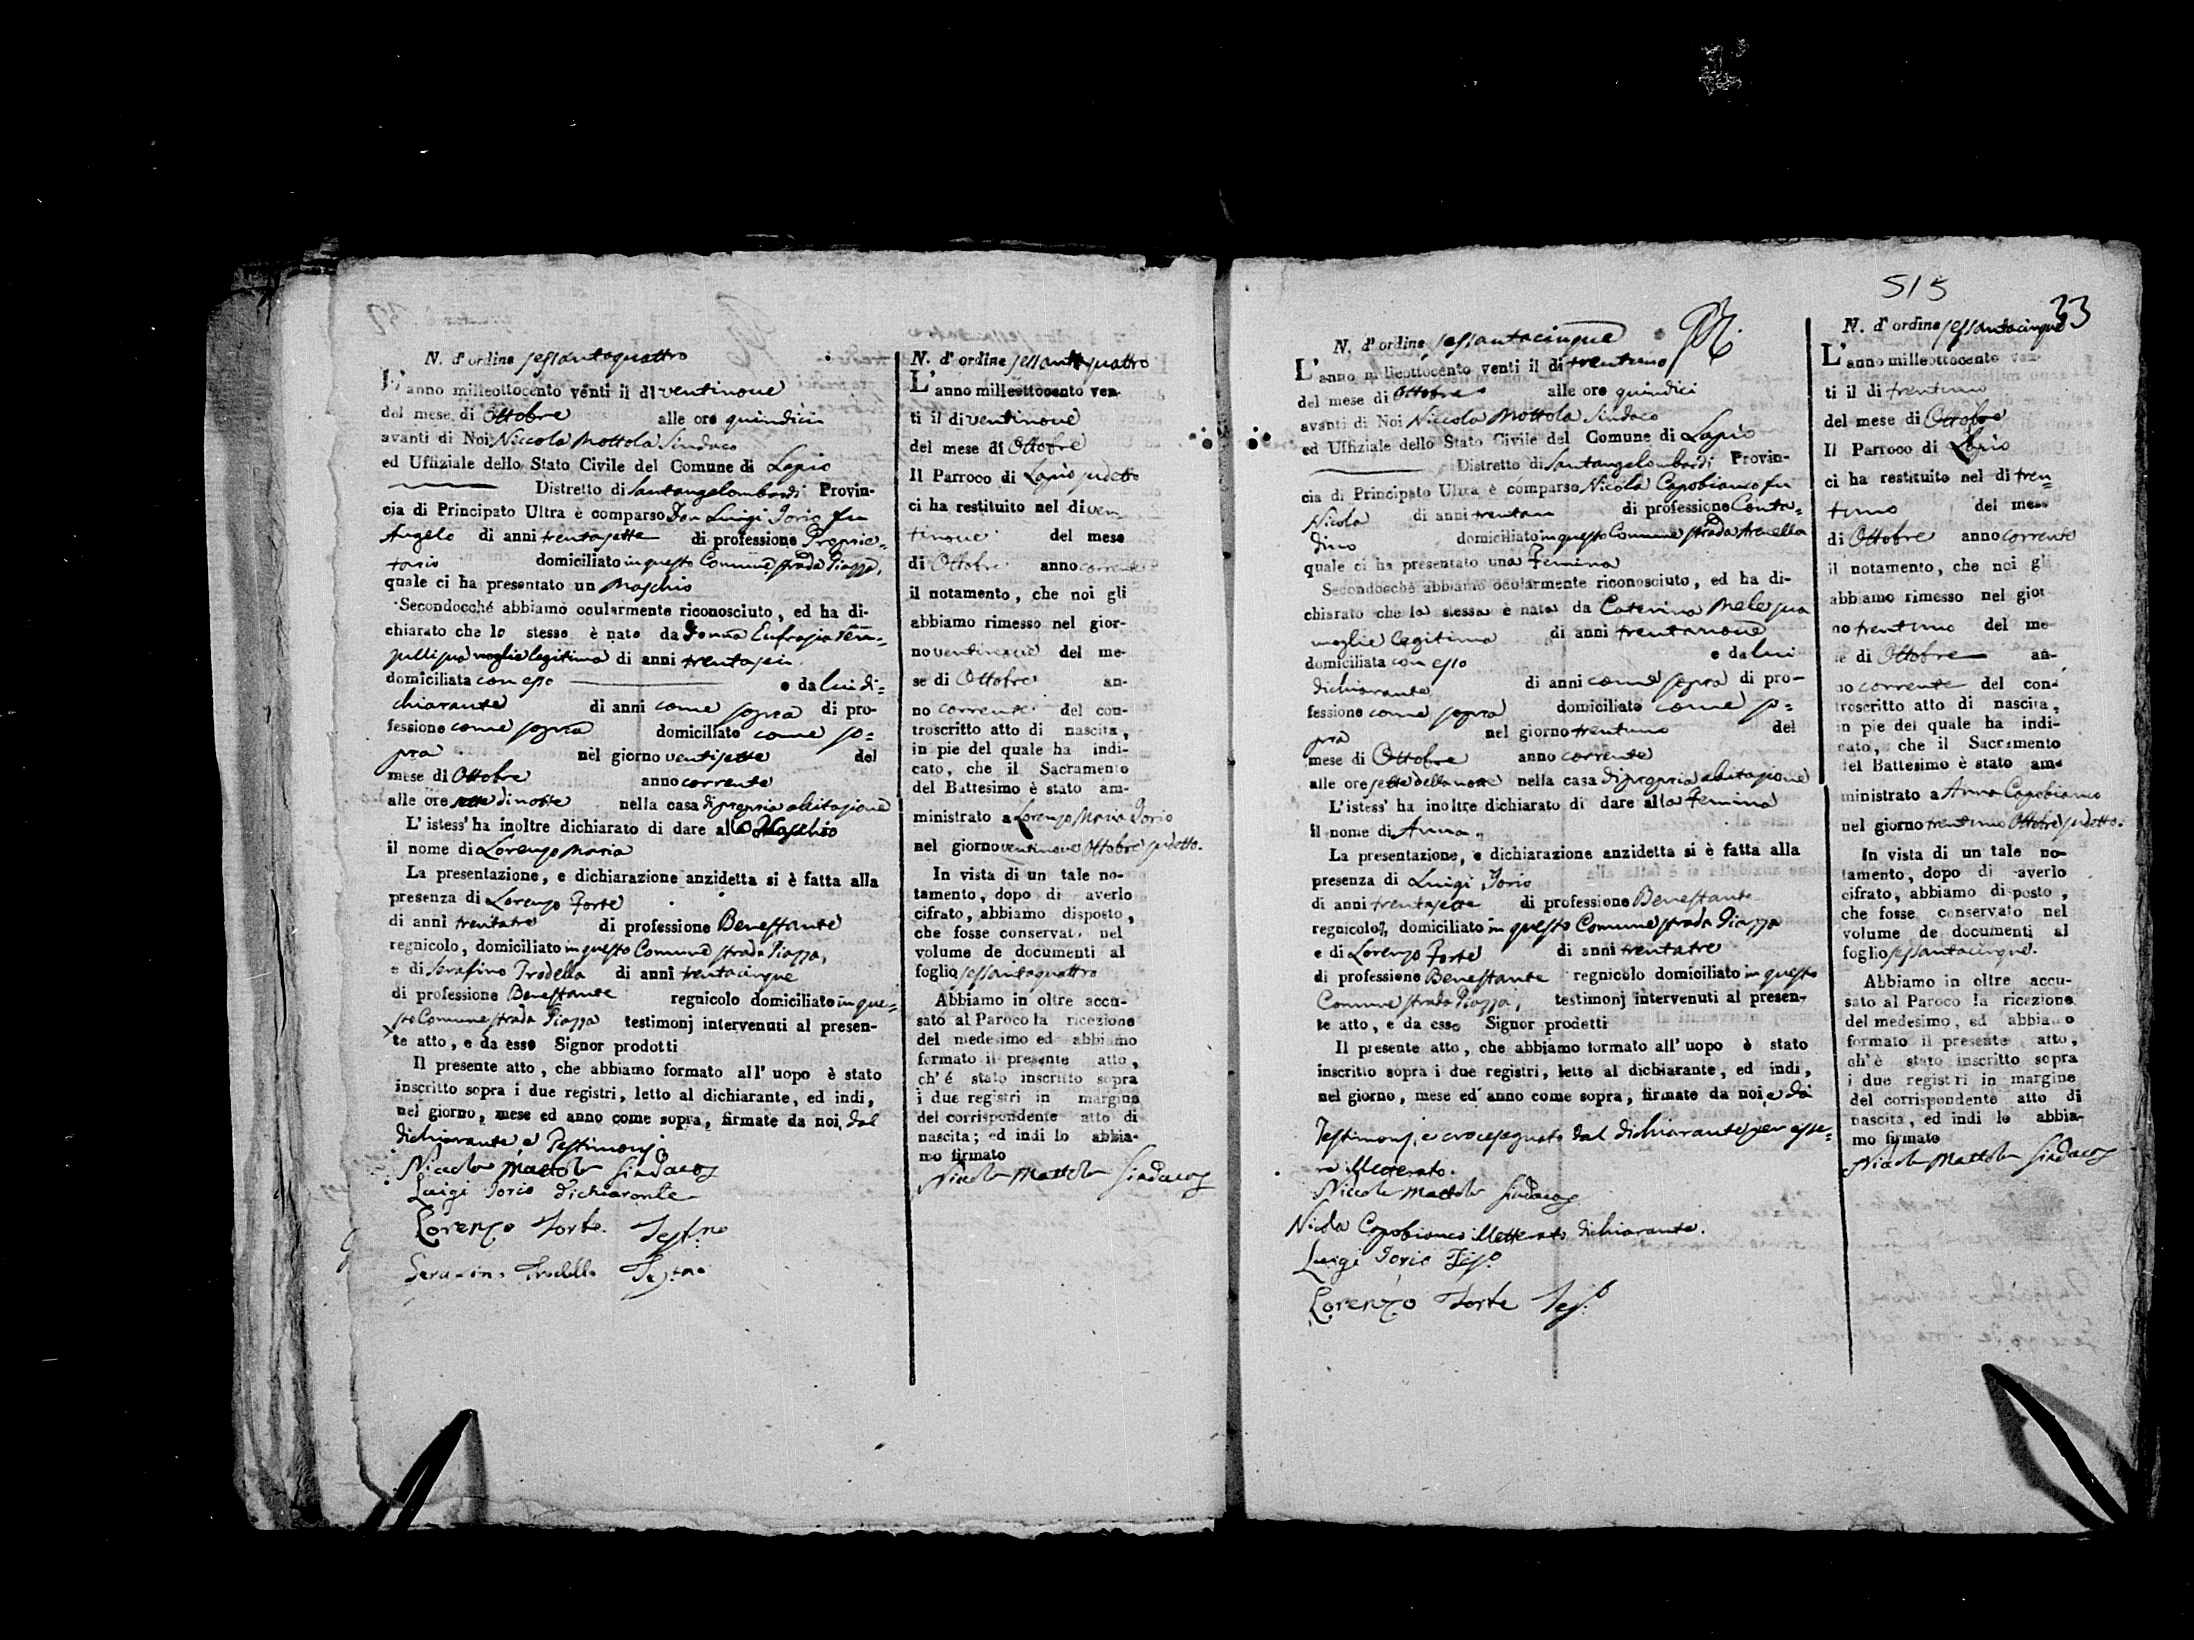 N. d'ordine sessantaquattro
L'anno milleottocento venti il di ventinove
del mese di Ottobre alle ore quindici
avanti di Noi Niccola Mottola Sindaco
ed Uffiziale dello Stato Civile del Comune di Lapio
Distretto di Santangelombardi Provin-
cia di Principato Ultra è comparso Don Luigi Iorio fu
Angelo di anni trentasette di professione Proprie=
tario domiciliato in questo Comune strada Piazza,
quale ci ha presentato un Maschio
Secondocché abbiamo ocularmente riconosciuto, ed ha di-
chiarato che lo stesso è nato da Donna Eufrasia
sua moglie legitima di anni trentasei
domiciliata con esso e da lui di=
chiarante di anni come sopra di pro-
fessione come sopra domiciliato come so=
pra nel giorno ventisette del
mese di Ottobre anno corrente
alle ore sette di notte nella casa di propria abitazione
L'istess' ha inoltre dichiarato di dare allo Maschio
il nome di Lorenzo Maria
La presentazione, e dichiarazione anzidetta si è fatta alla
presenza di Lorenzo Forte
di anni trentatre di professione Benestante
regnicolo, domiciliato in questo Comune strada Piazza,
e di Serafino Trodella di anni trentacinque
di professione Benestante regnicolo domiciliato in que=
sto Comune strada Piazza testimonj intervenuti al presen-
te atto, e da esso Signor prodotti
Il presente atto, che abbiamo formato all' uopo è stato
inscritto sopra i due registri, letto al dichiarante, ed indi,
nel giorno, mese ed anno come sopra, firmate da noi, dal
dichiarante e Testimonj
Niccola Mottola Sindaco
Luigi Iorio dichiarante
Lorenzo Forte Testno
Serafino Trodella Testno
N. d' ordine sessantaquattro
L'anno milleottocento ven-
ti il di ventinove
del mese di Ottobre
Il Parroco di Lapio sudetto
ci ha restituito nel di ven
tinove del mese
di Ottobre anno corrente
il notamento, che noi gli
abbiamo rimesso nel gior-
no ventinove del me-
se di Ottobre an-
no corrente del con-
troscritto atto di nascita,
in pie del quale ha indi-
cato, che il Sacramento
del Battesimo è stato am-
ministrato a Lorenzo Maria Iorio
nel giorno ventinove Ottobre sudetto.
In vista di un tale no-
tamento, dopo di averlo
cifrato, abbiamo disposto,
che fosse conservato nel
volume de documenti al
foglio sessantaquattro
Abbiamo in oltre accu-
sato al Paroco la ricezione
del medesimo ed abbiamo
formato il presente atto,
ch' é stato inscritto sopra
i due registri in margine
del corrispondente atto di
nascita; ed indi lo abbia-
mo firmato
Nicola Mottola Sindaco
515
33
N. d' ordine sessantacinque
L'anno milleottocento venti il di trentuno
del mese di Ottobre alle ore quindici
avanti di Noi Niccola Mottola Sindaco
ed Uffiziale dello Stato Civile del Comune di Lapio
Distretto di Santangelombardi Provin-
cia di Principato Ultra è comparso Nicola Capobianco fu
Nicola di anni di professione Conta=
dino domiciliato in questo Comune strada
quale ci ha presentato una Femina
Secondocché abbiamo ocularmente riconosciuto, ed ha di-
chiarato che la stessa è nata da Caterina Mele sua
moglie legitima di anni trentanove
domiciliata con esso e da lui
dichiarante di anni come sopra di pro-
fessione come sopra domiciliato come so=
pra nel giorno trentuno del
mese di Ottobre anno corrente
alle ore sette della notte nella casa di propria abitazione
L'istess' ha inoltre dichiarato di dare alla Femina
il nome di Anna.
La presentazione, e dichiarazione anzidetta si è fatta alla
presenza di Luigi Iorio
di anni trentasette di professione Benestante
regnicolo, domiciliato in questo Comune strada Piazza
e di Lorenzo Forte di anni trentatre
di professione Benestante regnicolo domiciliato in questo
Comune strada Piazza, testimonj intervenuti al presen-
te atto, e da esso Signor prodotti
Il presente atto, che abbiamo formato all' uopo è stato
inscritto sopra i due registri, letto al dichiarante, ed indi,
nel giorno, mese ed anno come sopra, firmate da noi, e da
Testimonj, e crocesegnato dal dichiarante per esse=
re illetterato.
Niccola Mottola Sindaco
Nicola Capobianco illetterato dichiarante.
Luigi Iorio Tes.o
Lorenzo Forte Tes.o
N. d' ordine sessantacinque
L'anno milleottocento ven-
ti il di trentuno
del mese di Ottobre
Il Parroco di Lapio
ci ha restituito nel di tren=
tuno del mese
di Ottobre anno corrente
il notamento, che noi gli
abbiamo rimesso nel gior
no trentuno del me-
se di Ottobre an-
no corrente del con-
troscritto atto di nascita,
in pie del quale ha indi-
cato, che il Sacramento
del Battesimo è stato am-
ministrato a Anna Capobianco
nel giorno trentuno Ottobre sudetto.
In vista di un tale no-
tamento, dopo di averlo
cifrato, abbiamo disposto,
che fosse conservato nel
volume de documenti al
foglio sessantacinque.
Abbiamo in oltre accu-
sato al Paroco la ricezione
del medesimo, ed abbiamo
formato il presente atto,
ch' è stato inscritto sopra
i due registri in margine
del corrispondente atto di
nascita, ed indi lo abbia-
mo firmato
Nicola Mottola Sindaco